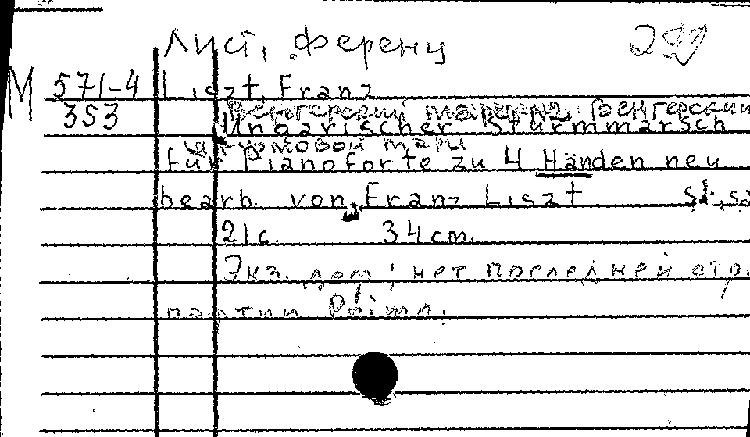 Лист, Ференц
М 571-4 Liszt, Franz
353 Венгерский Венгерский
Ungarischer Sturmmarsch
штурмовой марш
für Pianoforte zu 4 Händen neu
bearb. von Franz Liszt
21 с. 34 cm.
Экз. деф.: нет последней стр.
партии